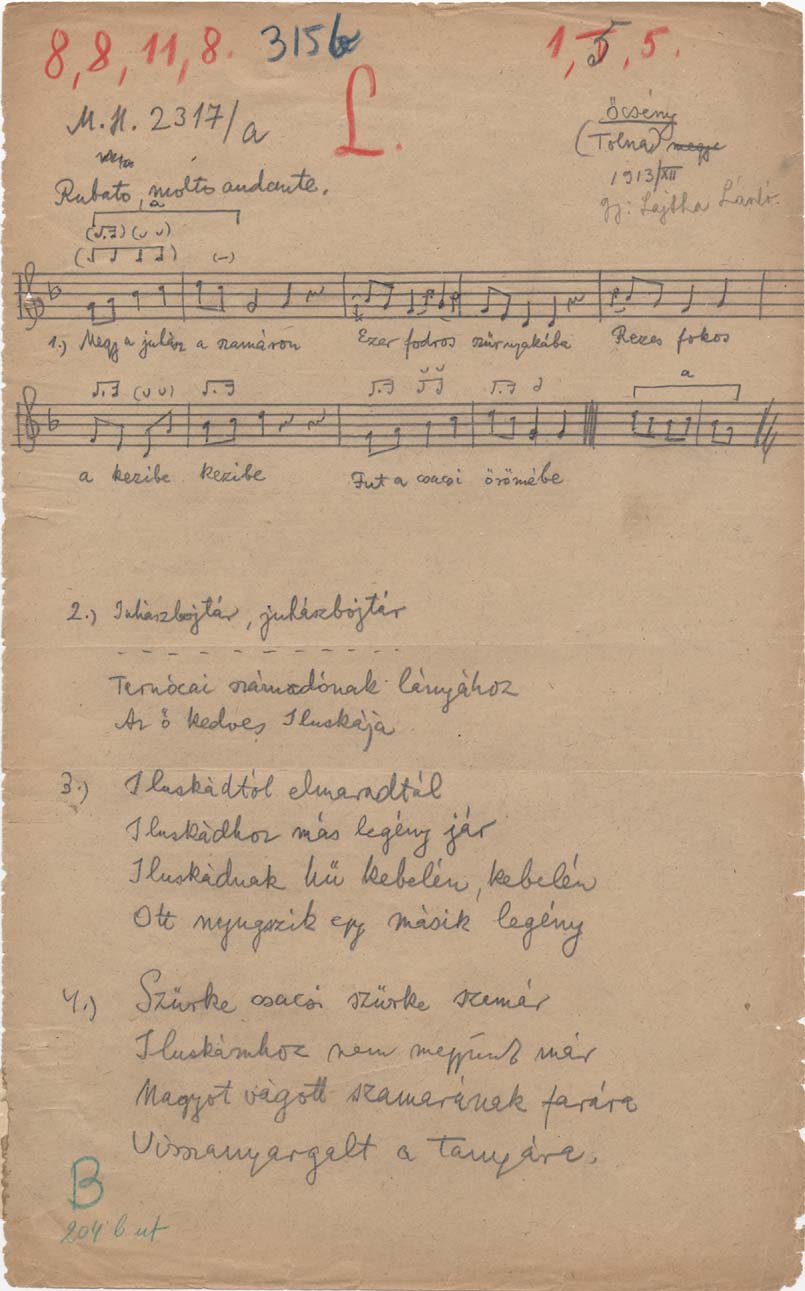 8, 8, 11, 8. 315b 1, 5, 5.
M.H. 2317/a L. Őcsény
(Tolna) megye
1913/XII
Rubato, molto andante. gy: Lajtha László.
a
1.) Megy a julász a szamáron Ezer fodros szűrnyakába Rezes fokos
a
a kezibe kezibe Fut a csacsi örömébe
2.) Juhászbojtár, juhászbojtár
Ternócai számadónak lányához
Az ő kedves Iluskája
3.) Iluskádtól elmaradtál
Iluskádhoz más legény jár
Iluskádnak hű kebelén, kebelén
Ott nyugszik egy másik legény
4.) Szürke csacsi szürke szamár
Iluskámhoz nem megyünk már
Nagyot vágott szamarának farára
Visszanyargalt a tanyára.
B
204 b ut